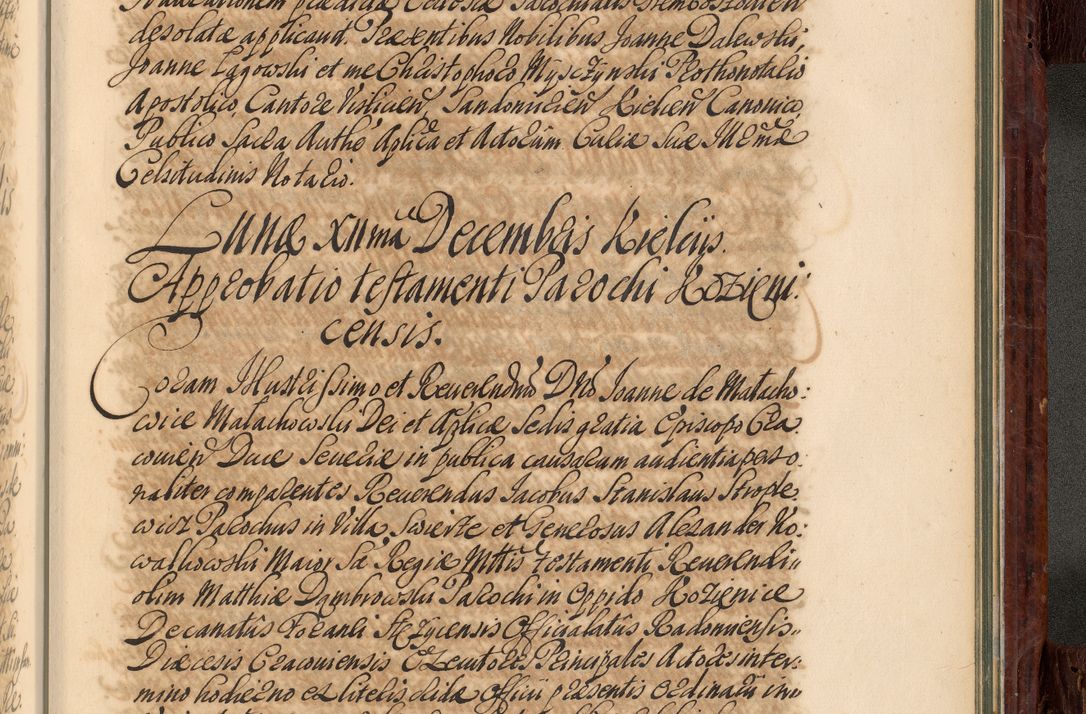 desolatæ applicand. Præsentibus Nobilibus Joanne Dalewski,
Joanne Łągowski et me Christophoro Myszczynski Prothonotario
Apostolico, Cantore Vislicien, Sandomirien Kielcen Canonico,
Publico Sacra Autho Aplica et Actorum Curiæ Suæ
Celsitudinis Notario.
Lunæ XII ma Decembris Kielcijs.
Approbatio testamenti Parochi Kozieni:
censis.
Coram Illustrissimo et Reverendmo Dno Joanne de Małacho:
wice Małachowski Dei et Aplicæ Sedis gratia Episcopo Cra
covien Duce Severiæ in publica causarum audientia perso
naliter comparentes Reverendus Jacobus Stanislaus
Parochus in Villa Swierze et Generosus Alexander No:
walkowski Maior Sa Regiæ Mttis testamenti Reverendi
olim Matthiæ Dąmbrowski Parochi in Oppido Kozienice
Decanatus Foranei Stęzycensis Officialatus Radomiensis
Diæcesis Cracoviensis Executores Principales Actores in ter:
mino hodierno ex literis cridæ officij præsentis ordinarij